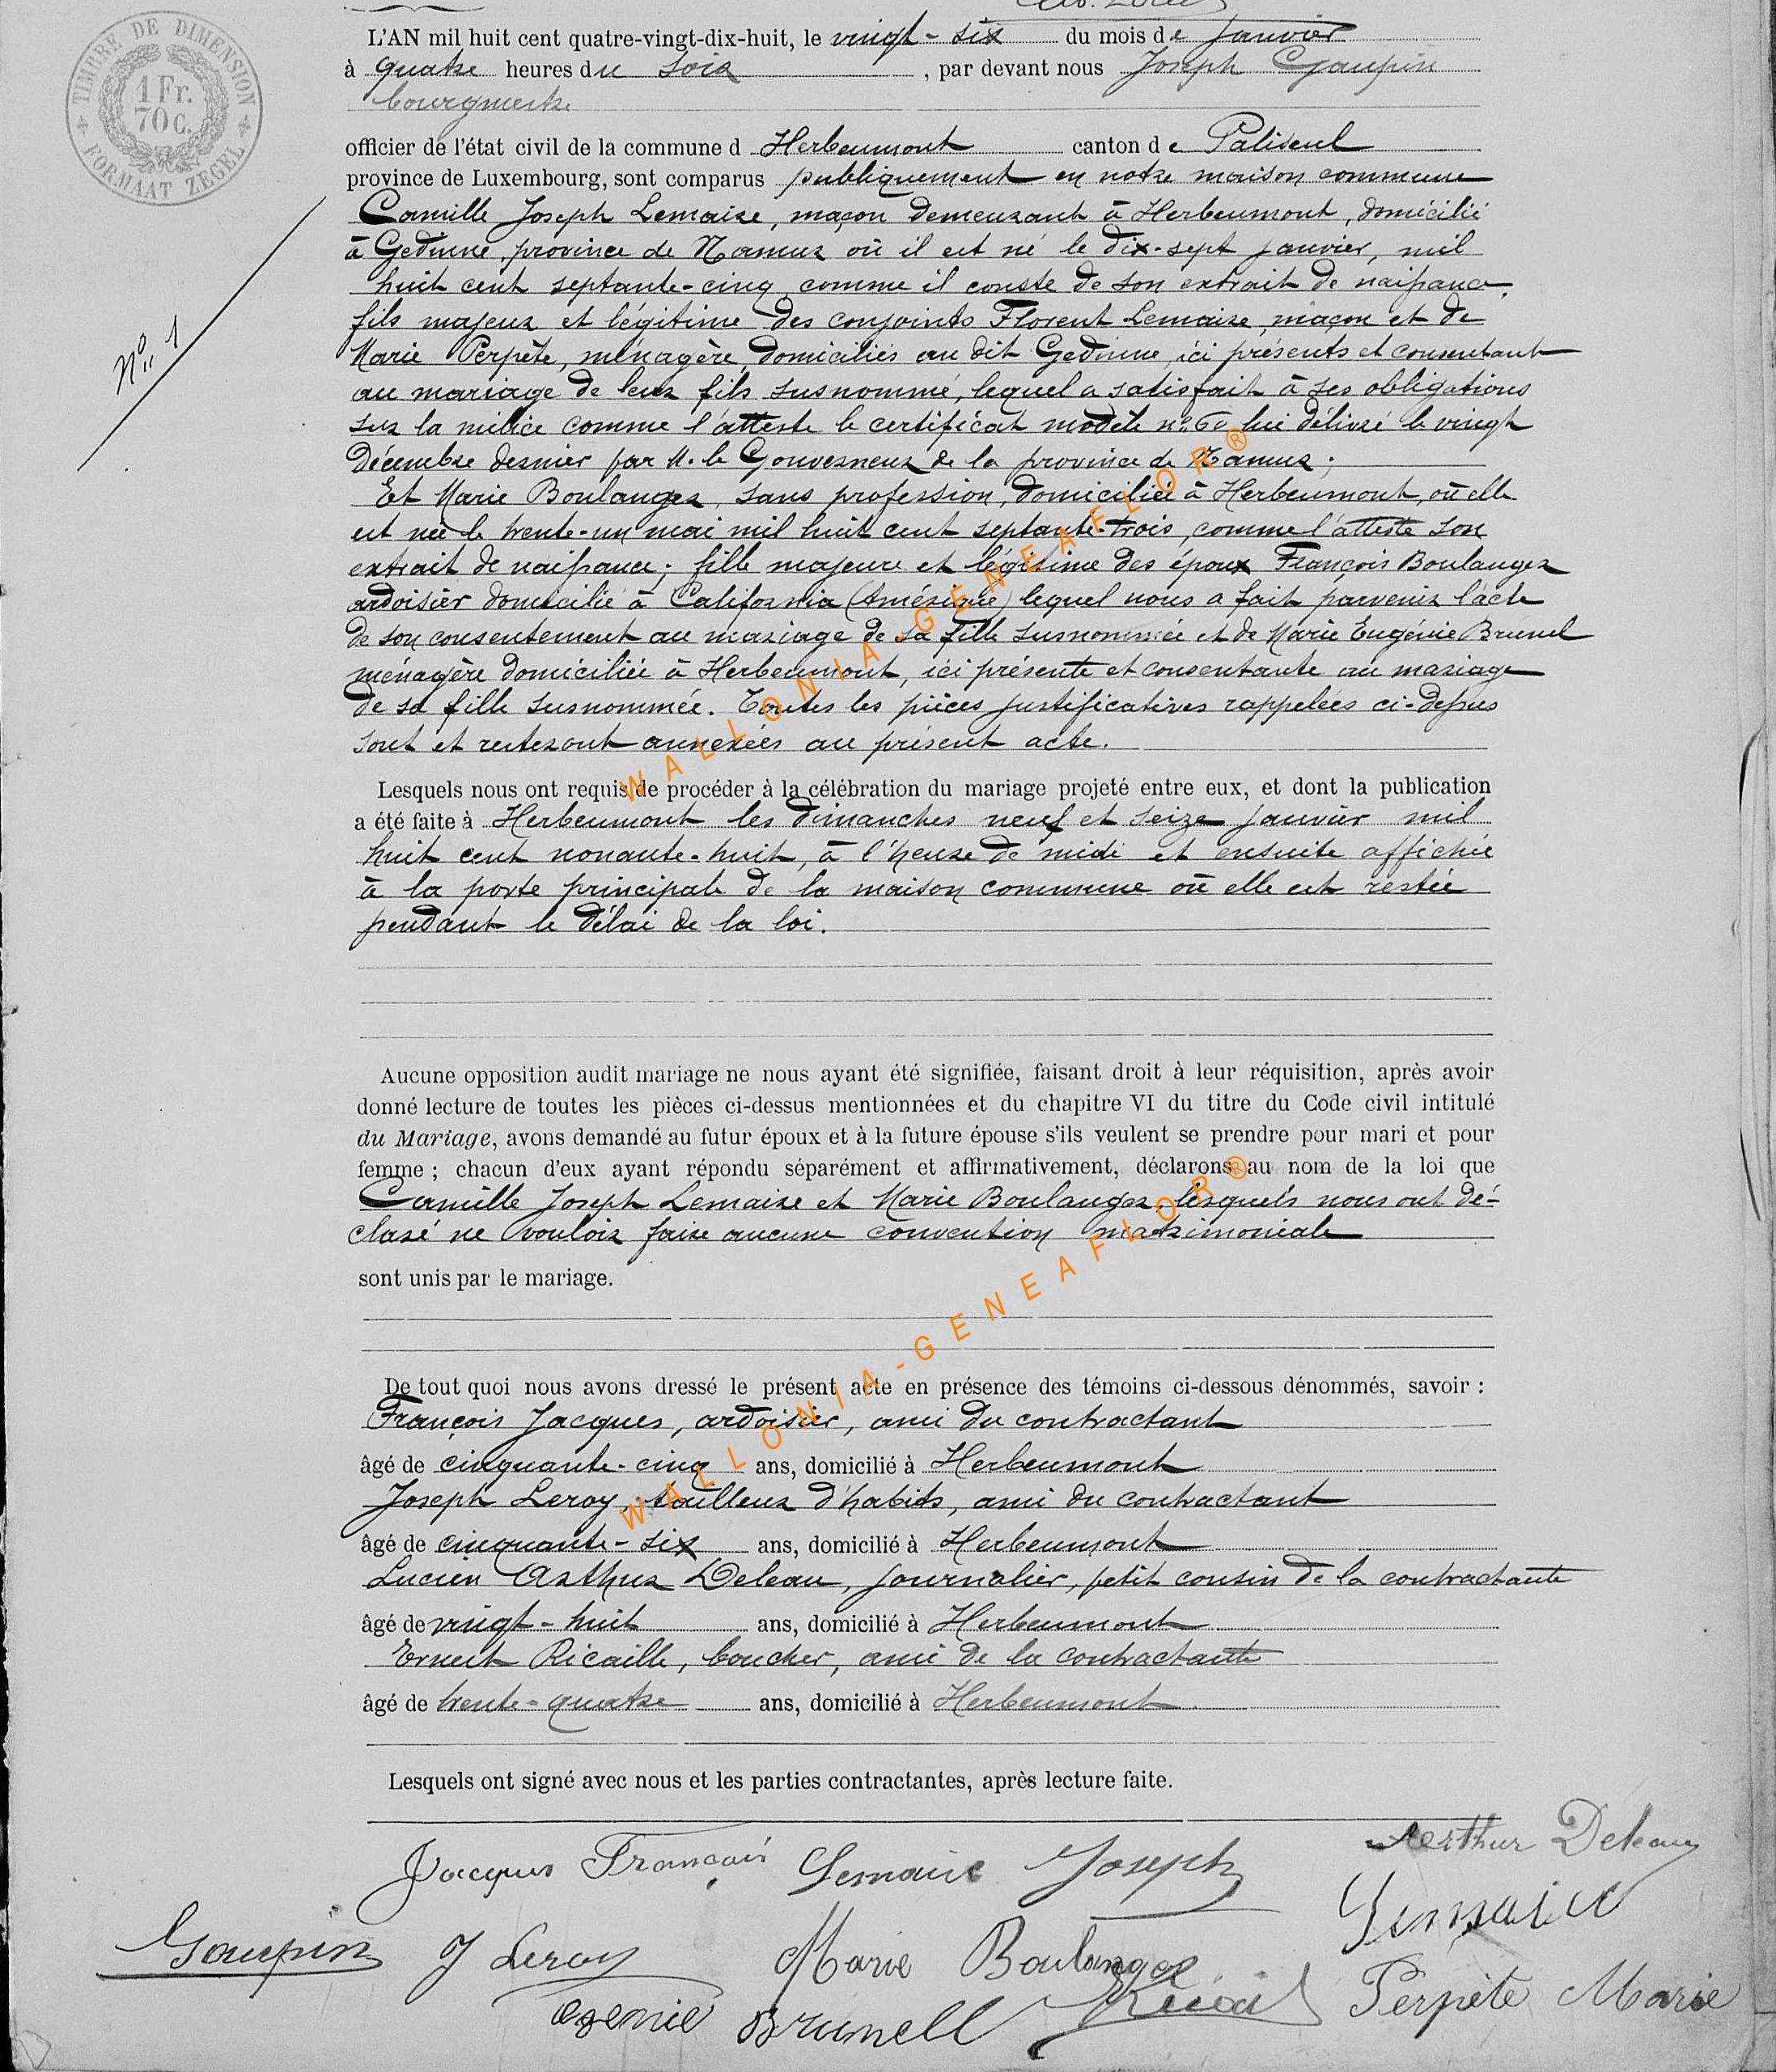 L'AN mil huit cent quatre-vingt-dix-huit, le vingt-six du mois de Janvier
à quatre heures du soir, par devant nous Joseph Gaupin
bourgmestre
officier de l'état civil de la commune d Herbeumont canton de Paliseul
province de Luxembourg, sont comparus publiquement en notre maison commune
Camille Joseph Lemaire, maçon demeurant à Herbeumont, domicilié
à Gedinne, province de Namur où il est né le dix-sept janvier, mil
huit cent septante-cinq, comme il conste de son extrait de naissance,
fils majeur et légitime des conjoints Florent Lemaire, maçon et de
Marie Perpète, ménagère, domiciliés au dit Gedinne, ici présents et consentant
au mariage de leur fils susnommé, lequel a satisfait à ses obligations
sur la milice comme l'atteste le certificat modèle n° 60 lui délivré le vingt
Décembre dernier par M. le Gouverneur de la province de Namur;
Et Marie Boulanger, sans profession, domiciliée à Herbeumont, où elle
est née le trente-un mai mil huit cent septante-trois, comme l'atteste son
extrait de naissance; fille majeure et légitime des époux François Boulanger
ardoisier domicilié à California (Amérique) lequel nous a fait parvenir l'acte
de son consentement au mariage de sa fille susnommée et de Marie Eugénie Brunel
ménagère domiciliée à Herbeumont, ici présente et consentante au mariage
de sa fille susnommée. Toutes les pièces justificatives rappelées ci-dessus
sont et resteront annexées au présent acte.
Lesquels nous ont requis de procéder à la célébration du mariage projeté entre eux, et dont la publication
a été faite à Herbeumont les dimanches neuf et seize janvier mil
huit cent nonante-huit, à l'heure de midi et ensuite affichée
à la porte principale de la maison commune où elle est restée
pendant le délai de la loi.
Aucune opposition audit mariage ne nous ayant été signifiée, faisant droit à leur réquisition, après avoir
donné lecture de toutes les pièces ci-dessus mentionnées et du chapitre VI du titre du Code civil intitulé
du Mariage, avons demandé au futur époux et à la future épouse s'ils veulent se prendre pour mari et pour
femme ; chacun d'eux ayant répondu séparément et affirmativement, déclarons au nom de la loi que
Camille Joseph Lemaire et Marie Boulanger, lesquels nous ont dé-
claré ne vouloir faire aucune convention matrimoniale
sont unis par le mariage.
De tout quoi nous avons dressé le présent acte en présence des témoins ci-dessous dénommés, savoir :
François Jacques, ardoisier, ami du contractant
âgé de cinquante-cinq ans, domicilié à Herbeumont
Joseph Leroy, tailleur d'habits, ami du contractant
âgé de cinquante-six ans, domicilié à Herbeumont
Lucien Arthur Deleau, journalier, petit cousin de la contractante
âgé de vingt-huit ans, domicilié à Herbeumont
Ernest Ricaille, boucher, ami de la contractante
âgé de trente-quatre ans, domicilié à Herbeumont
Lesquels ont signé avec nous et les parties contractantes, après lecture faite.
Jacques François Lemaire Joseph Arthur Deleau
Gaupin J Leroy Marie Boulanger Lemaire
egenie Brunell Ricaille Perpète Marie
TIMBRE DE DIMENSION
1 Fr.
70 C.
FORMAAT ZEGEL
N° 1
WALLONIA-GENEAFLOR®
WALLONIA-GENEAFLOR®